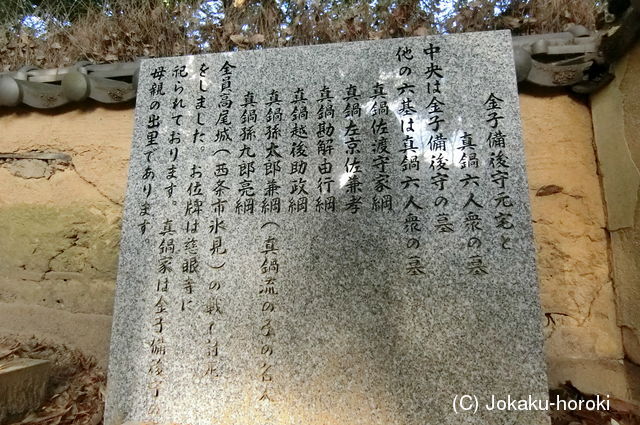 金子備後守元宅と
真鍋六人衆の墓
中央は金子備後守の墓
他の六基は真鍋六人衆の墓
真鍋佐渡守家綱
真鍋左京佐兼孝
真鍋勘解由行綱
真鍋越後助政綱
真鍋孫太郎兼綱(真鍋流の
真鍋孫九郎亮綱
全員高尾城(西条市氷見)の戦で討死
をしました。お位牌は慈眼寺に
祀られております。真鍋家は金子備後守
母親の出里であります。
(C) Jokaku-horoki